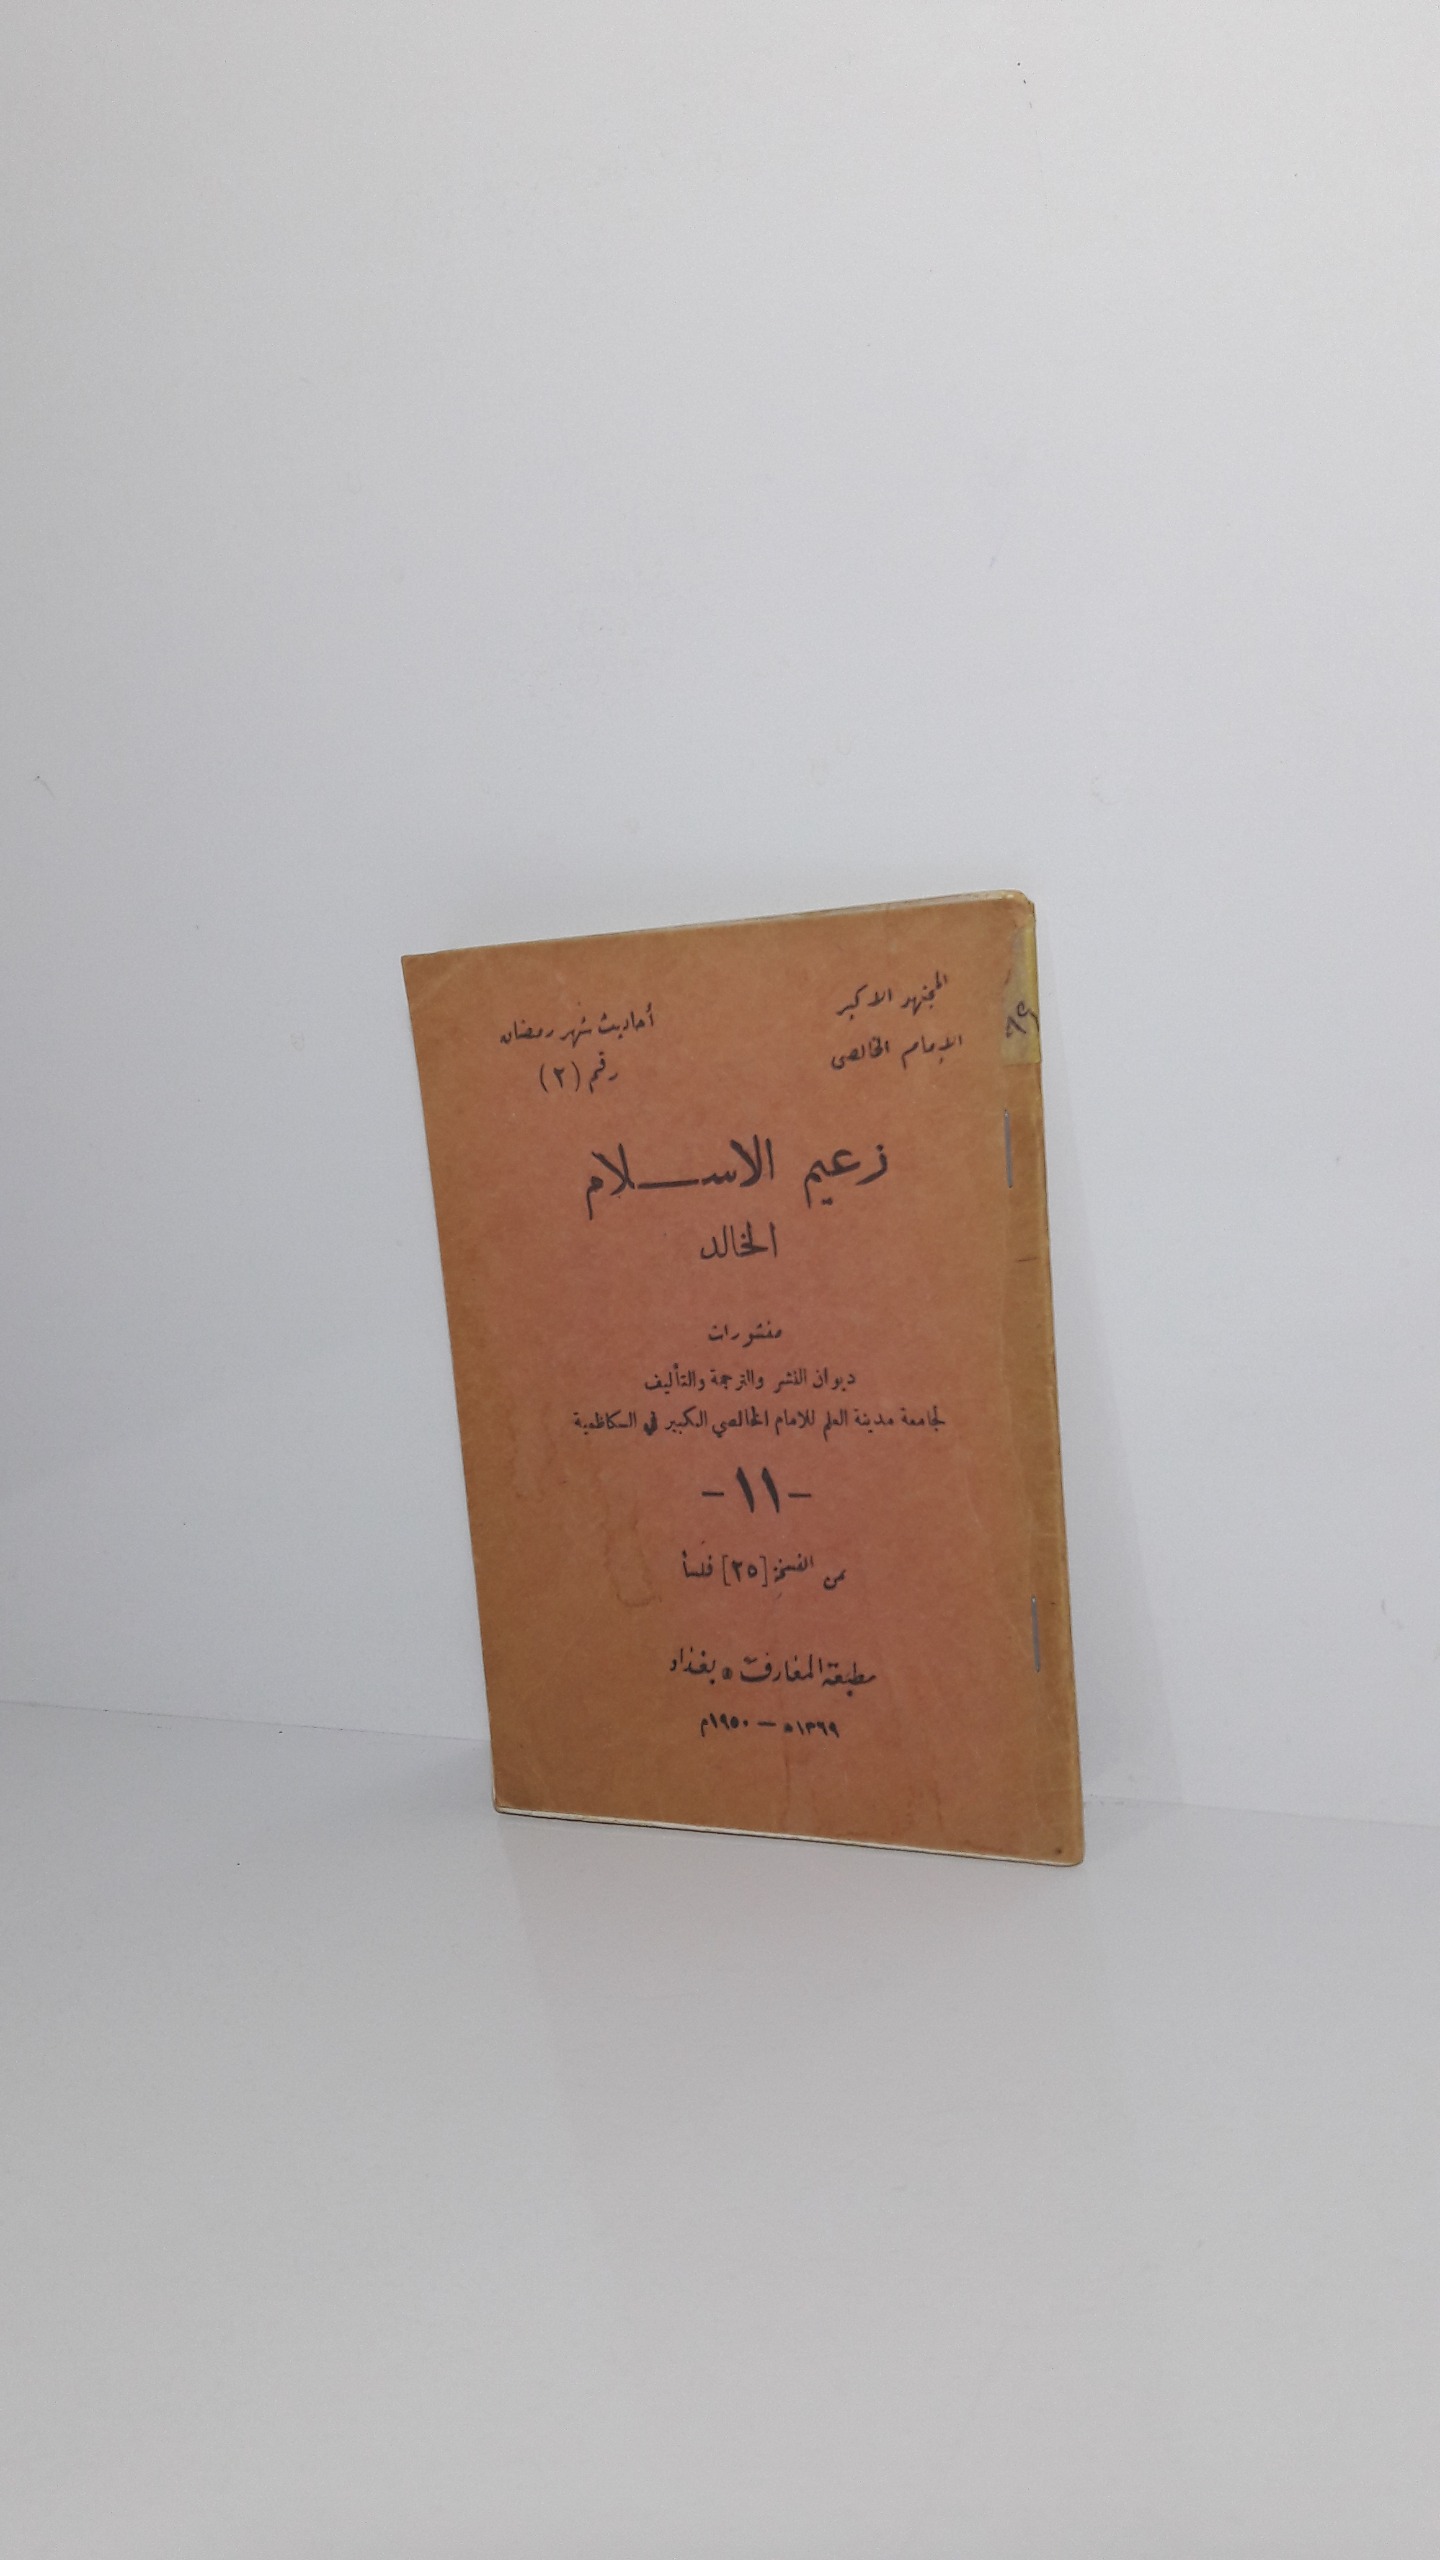 المجتهد الاكبر
الامام الخالصي
أحاديث شهر رمضان
رقم (٢)
زعيم الاســـلام
الخالد
منشورات
ديوان النشر والترجمة والتأليف
لجامعة مدينة العلم للامام الخالصي الكبير في الكاظمية
-١١-
ثمن النسخة [٢٥] فلساً
مطبعة المعارف ـ بغداد
١٣٦٩هـ — ١٩٥٠م